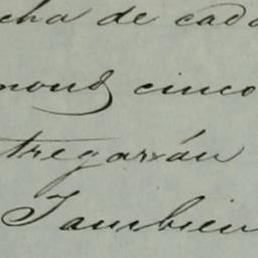 cha de cada
mond cinco
tregarán
Tambien